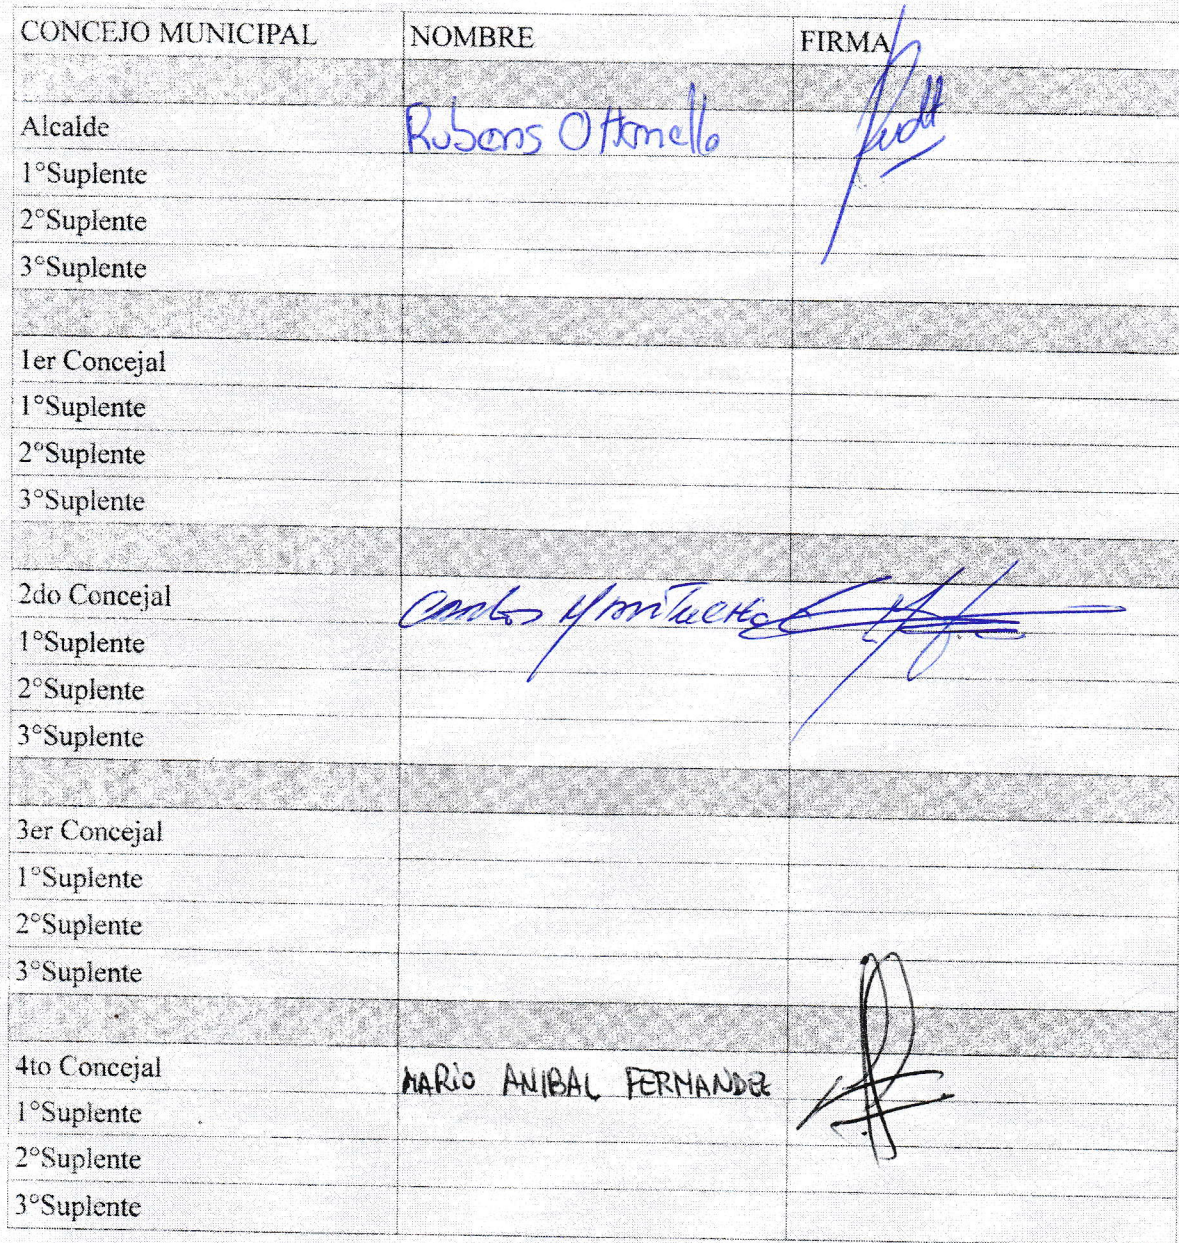 CONCEJO MUNICIPAL NOMBRE FIRMA
Alcalde Rubens Ottonello
1°Suplente
2°Suplente
3°Suplente
1er Concejal
1°Suplente
2°Suplente
3°Suplente
2do Concejal Carlos
1°Suplente
2°Suplente
3°Suplente
3er Concejal
1°Suplente
2°Suplente
3°Suplente
4to Concejal MARIO ANIBAL FERNANDEZ
1°Suplente
2°Suplente
3°Suplente